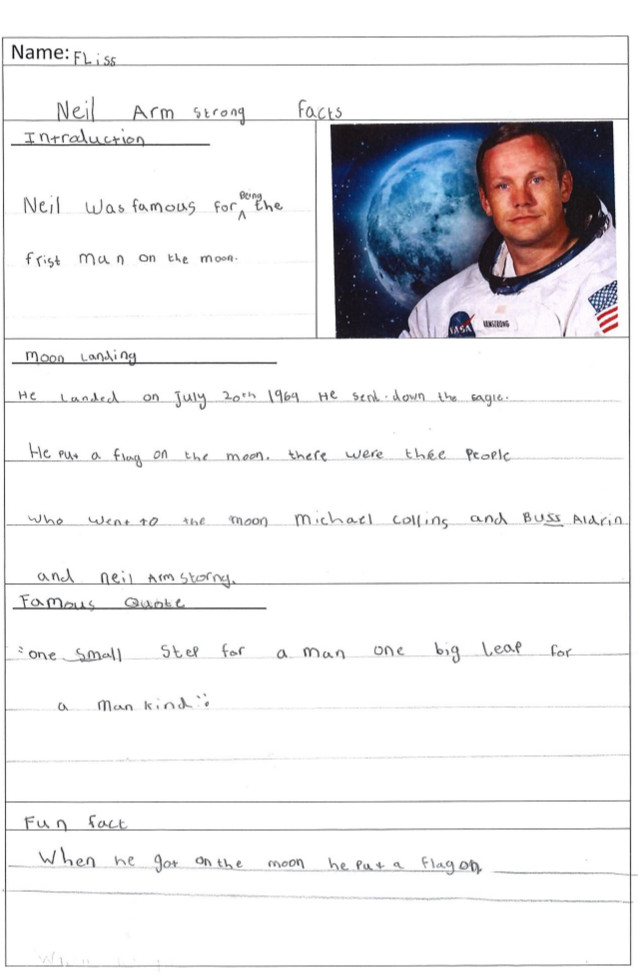 Name: FLiss
Neil Arm strong facts
Introduction
Neil was famous for being the
frist man on the moon.
NASA
ARMSTRONG
Moon Landing
He Landed on July 20th 1969 He sent down the eagle.
He put a flag on the moon. there were thee people
who went to the moon michael collins and Buss Aldrin
and neil Armstorng.
Famous Quote
"one small step for a man one big leap for
a man kind"
Fun fact
When he got on the moon he put a flag on